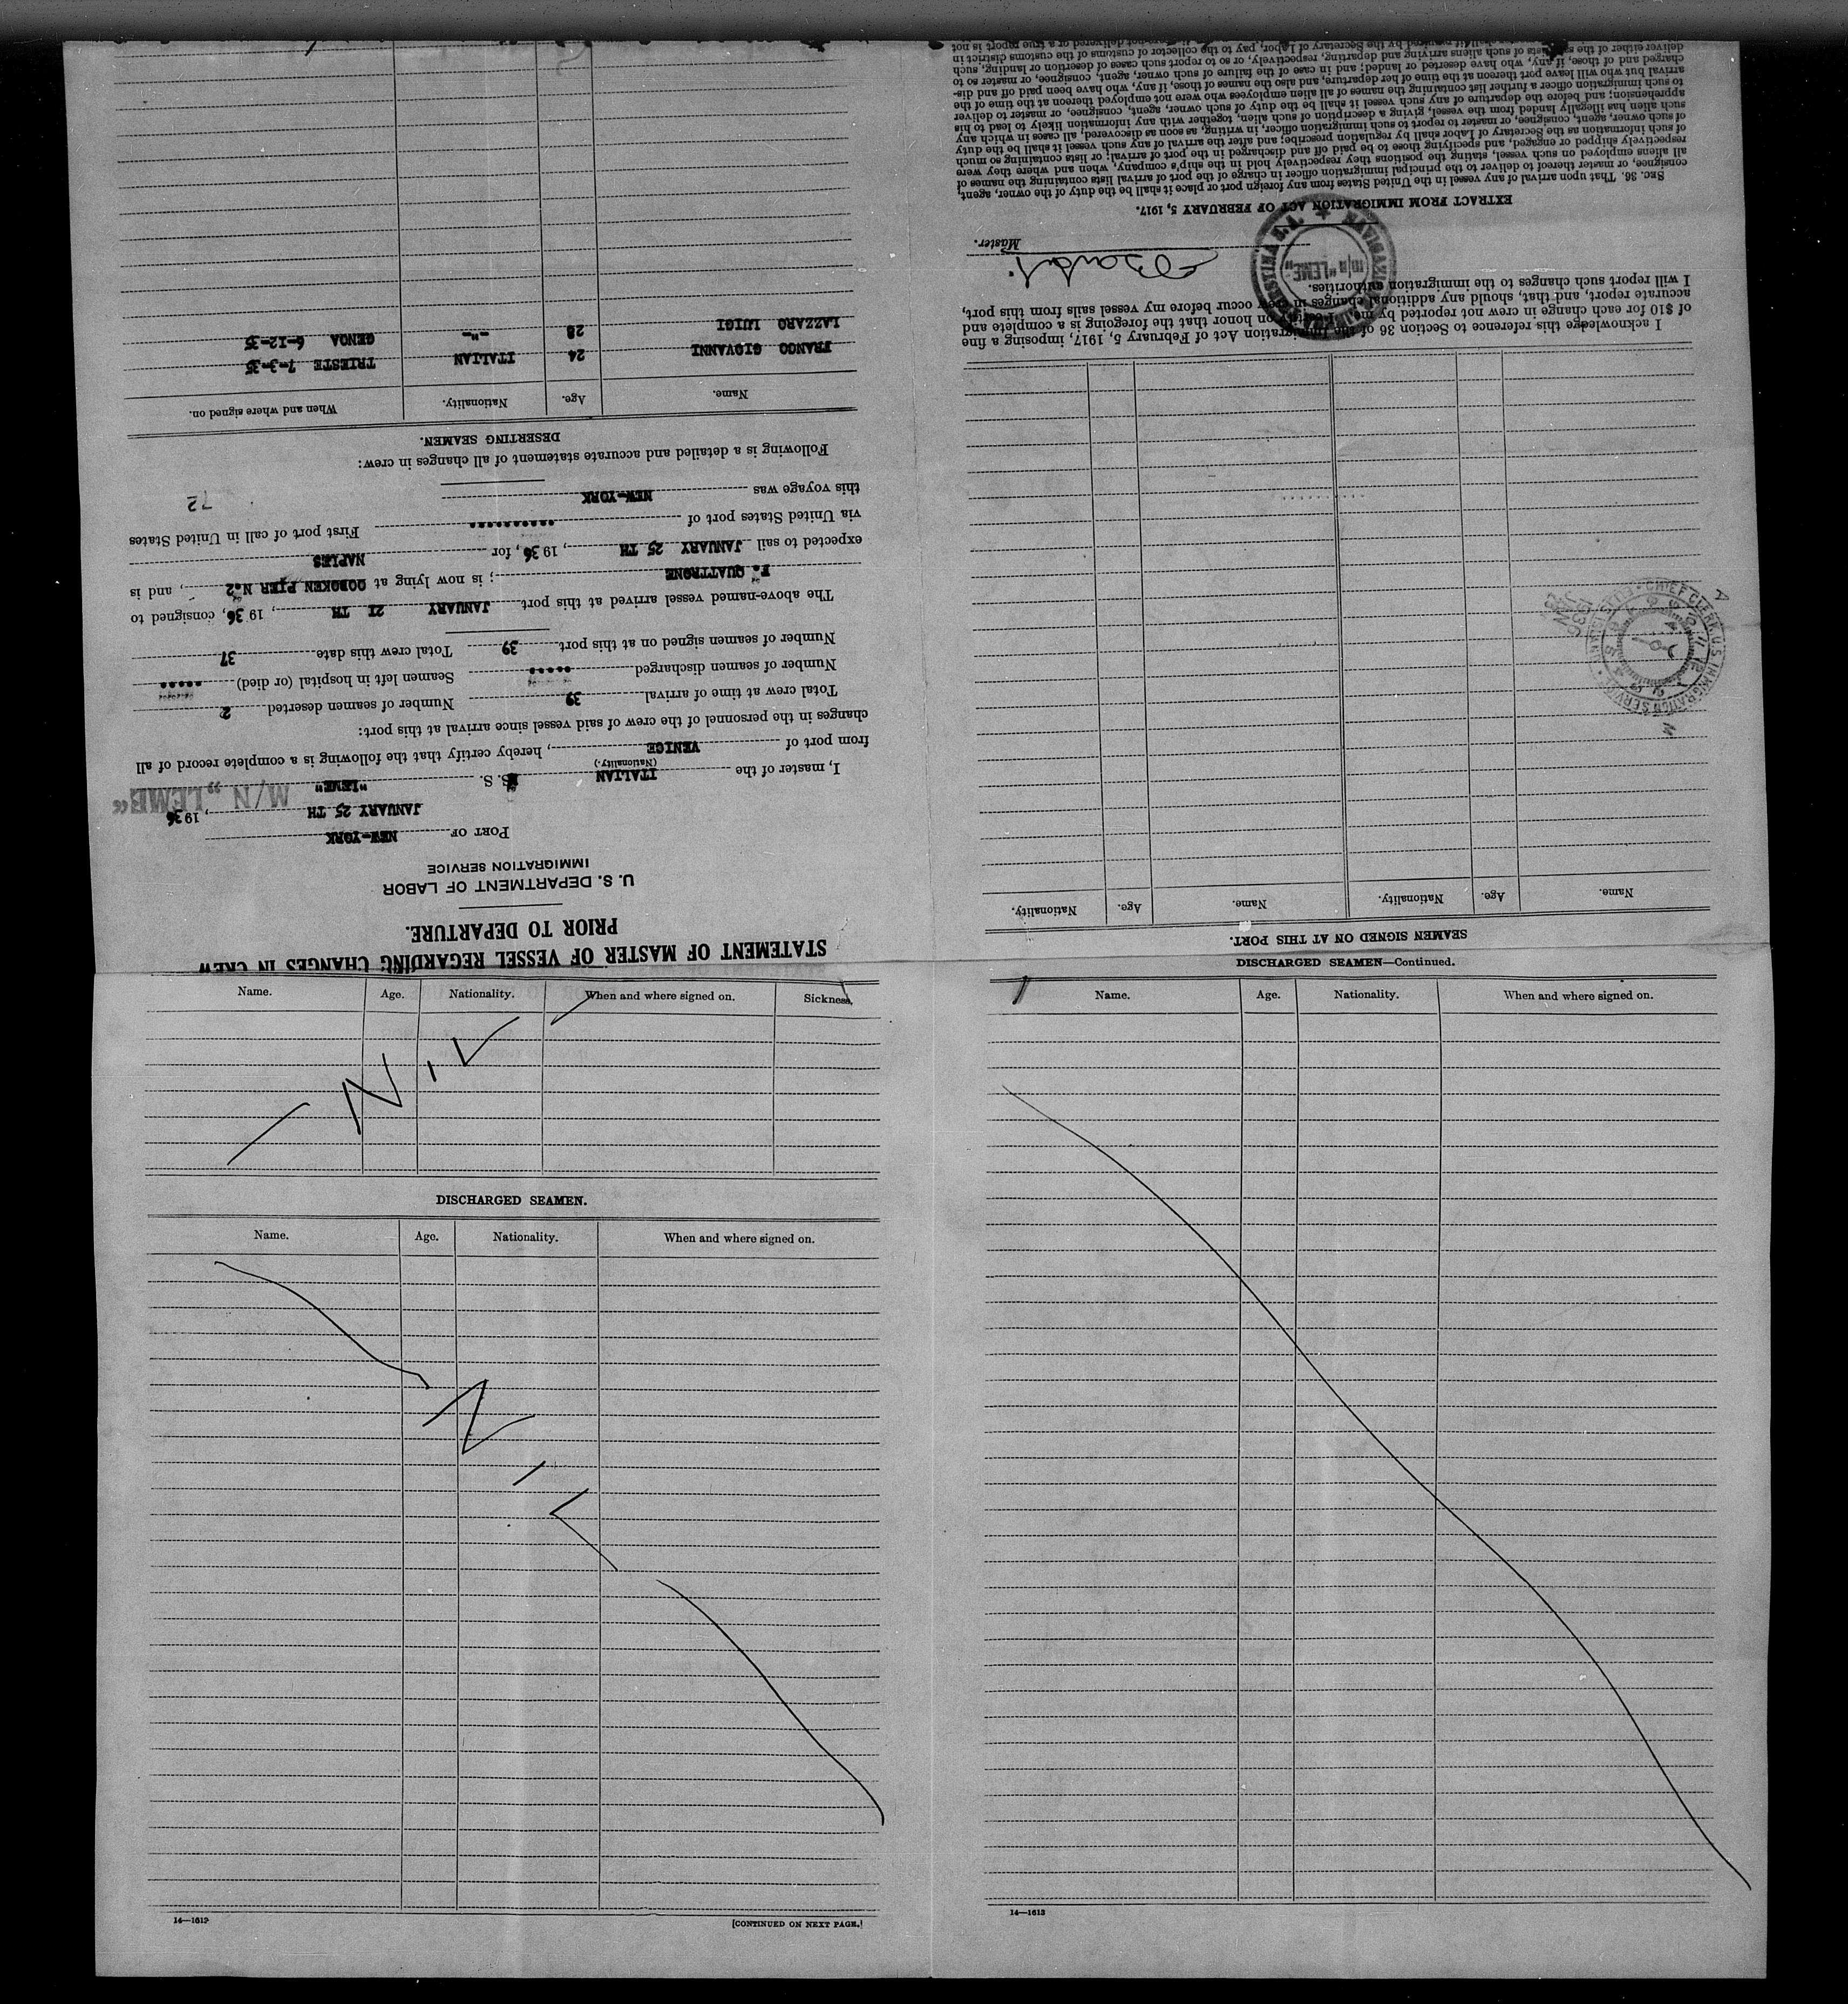 STATEMENT OF MASTER OF VESSEL REGARDING CHANGES IN CREW
PRIOR TO DEPARTURE.
U. S. DEPARTMENT OF LABOR
IMMIGRATION SERVICE
PORT OF NEW-YORK
JANUARY 25 TH, 1936
M/N "LEME"
I, master of the ITALIAN S. S. "LEME"
(Nationality.)
from port of VENICE, hereby certify that the following is a complete record of all
changes in the personnel of the crew of said vessel since arrival at this port:
Total crew at time of arrival 39 Number of seamen deserted 2
Number of seamen discharged Seamen left in hospital (or died)
Number of seamen signed on at this port 39 Total crew this date 37
The above-named vessel arrived at this port JANUARY 21 TH, 1936, consigned to
F. QUATTRONE; is now lying at HOBOKEN PIER N.2, and is
expected to sail JANUARY 25 TH, 1936, for NAPLES
via United States port of First port of call in United States
this voyage was NEW-YORK
72
Following is a detailed and accurate statement of all changes in crew:
DESERTING SEAMEN.
Name. Age. Nationality. When and where signed on.
FRANCO GIOVANNI 24 ITALIAN TRIESTE 7-3-35
LAZZARO LUIGI 28 -"- GENOA 6-12-35
Name. Age. Nationality. When and where signed on. Sickness.
DISCHARGED SEAMEN.
Name. Age. Nationality. When and where signed on.
14—1613
[CONTINUED ON NEXT PAGE.]
DISCHARGED SEAMEN—Continued.
Name. Age. Nationality. When and where signed on.
14—1613
SEAMEN SIGNED ON AT THIS PORT.
Name. Age. Nationality. Name. Age. Nationality.
CHIEF CLERK, U.S. IMMIGRATION SERVICE
I acknowledge this reference to Section 36 of the Immigration Act of February 5, 1917, imposing a fine
of $10 for each change in crew not reported by me. I certify on honor that the foregoing is a complete and
accurate report, and that, should any additional changes in crew occur before my vessel sails from this port,
I will report such changes to the immigration authorities.
m/n "LEME"
Master.
EXTRACT FROM IMMIGRATION ACT OF FEBRUARY 5, 1917.
SEC. 36. That upon arrival of any vessel in the United States from any foreign port or place it shall be the duty of the owner, agent,
consignee, or master thereof to deliver to the principal immigration officer in charge of the port of arrival lists containing the names of
all aliens employed on such vessel, stating the positions they respectively hold in the ship's company, when and where they were
respectively shipped or engaged, and specifying those to be paid off and discharged in the port of arrival; or lists containing so much
of such information as the Secretary of Labor shall by regulation prescribe; and after the arrival of any such vessel it shall be the duty
of such owner, agent, consignee, or master to report to such immigration officer, in writing, as soon as discovered, all cases in which any
such alien has illegally landed from the vessel, giving a description of such alien, together with any information likely to lead to his
apprehension; and before the departure of any such vessel it shall be the duty of such owner, agent, consignee, or master to deliver
to such immigration officer a further list containing the names of all alien employees who were not employed thereon at the time of the
arrival but who will leave port thereon at the time of her departure, and also the names of those, if any, who have been paid off and dis-
charged and of those, if any, who have deserted or landed; and in case of the failure of such owner, agent, consignee, or master so to
deliver either of the said lists of such aliens arriving and departing, respectively, or so to report such cases of desertion or landing, such
by the Secretary of Labor, pay to the collector of customs of the customs district in
delivered or a true report is not